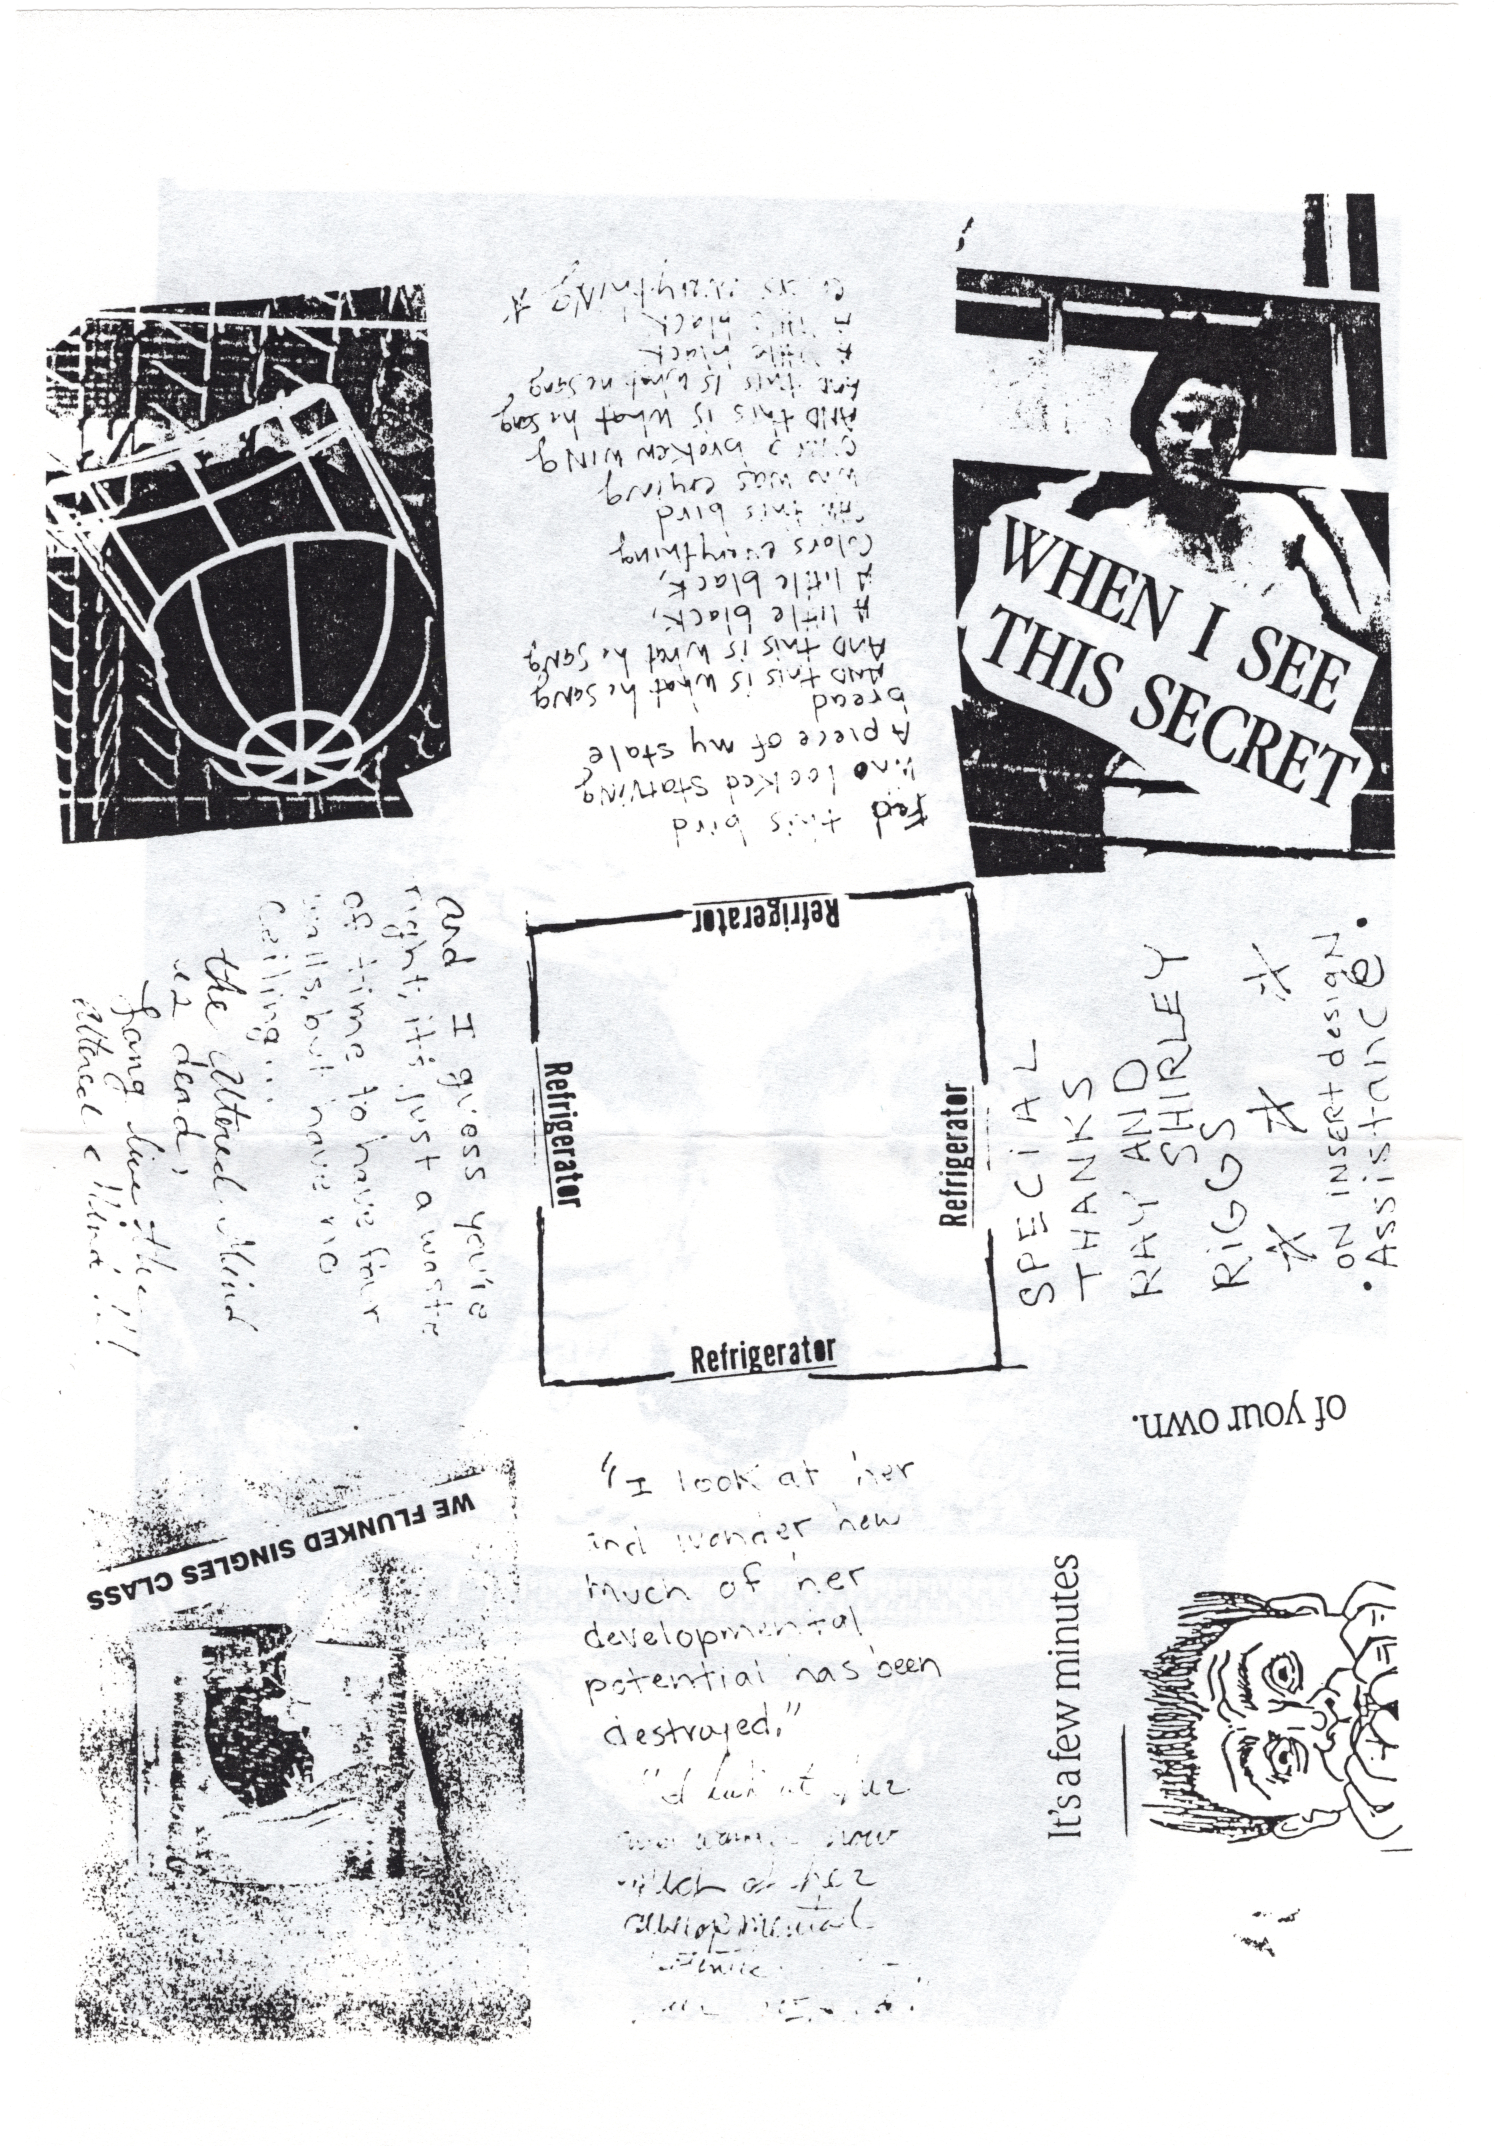 Fed this bird
who looked starving
A piece of my stale
bread
AND this is what he sang
AND this is what he sang
A little black,
A little black,
Colors everything
this bird
who was crying
broken wing
AND this is what he sang
And this is what he sang
A little black
A little black
everything
WHEN I SEE
THIS SECRET
Refrigerator
Refrigerator
Refrigerator
Refrigerator
and I guess you're
right, it's just a waste
of time to have four
walls, but have no
ceiling...
the Altered Mind
iz dead,
Long live the
Altered Mind!!!
SPECIAL
THANKS
RAY AND
SHIRLEY
RIGGS
ON INSERT design
• Assistance •
WE FLUNKED SINGLES CLASS
"I look at her
and wonder how
much of her
developmental
potential has been
destroyed."
"I look at her
how
much of her
developmental
of your own.
It's a few minutes